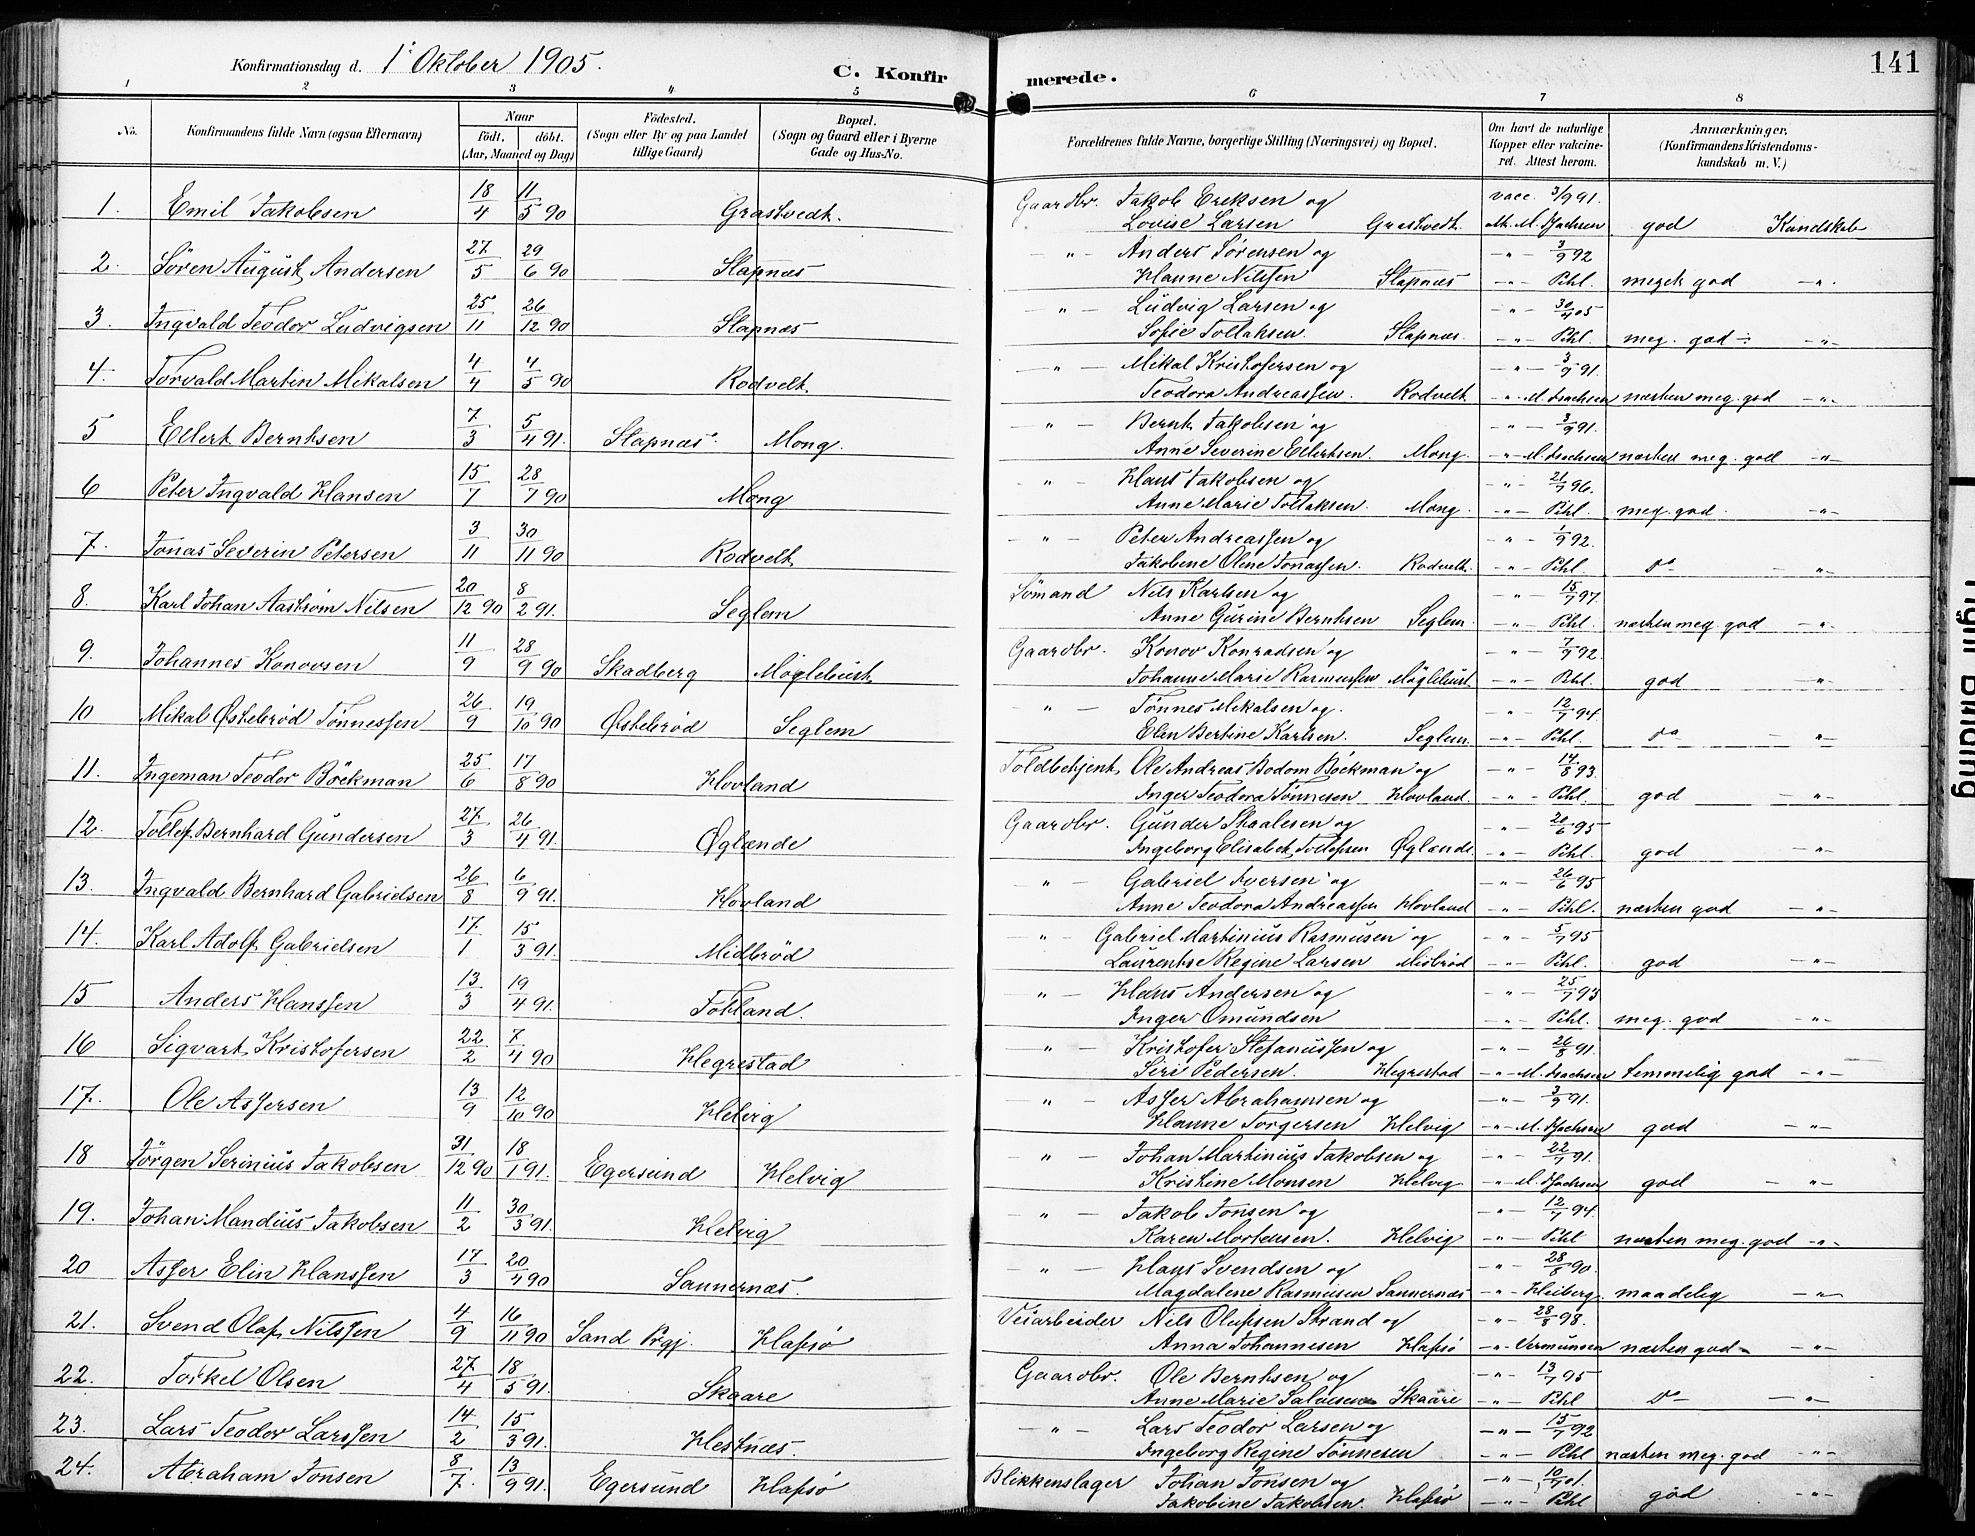 Konfirmationsdag d. 1' Oktober 1905.
C. Konfirmerede.
141
1 2 3 4 5 6 7 8
No. Konfirmandens fulde Navn (ogsaa Efternavn) Naar født, døbt. (Aar, Maaned og Dag) Fødested. (Sogn eller By og paa Landet tillige Gaard) Bopæl. (Sogn og Gaard eller i Byerne Gade og Hus-No. Forældrenes fulde Navne, borgerlige Stilling (Næringsvei) og Bopæl. Om havt de naturlige Kopper eller vaccineret. Attest herom. Anmærkninger, (Konfirmandens Kristendomskundskab m. V.)
1. Emil Jakobsen 18/4 11/5 90 Grastvedt. Gaardbr. Jakob Eriksen og vacc. 3/9 91.
Lovise Larsen Grastvedt. M. Isachsen god Kundskab
2. Søren August Andersen 27/5 29/6 90 Slapnæs " Anders Sørensen og 3/9 92
Hanne Nilssen Slapnæs -"- Pihl. meget god -"-
3. Ingvald Teodor Ludvigsen 25/11 26/12 90 Slapnæs " Ludvig Larsen og -"- 30/ 05
Sofie Tollaksen. Slapnæs. -"- Pihl. meg. god -"-
4. Torvald Martin Mikalsen 4/4 4/5 90 Rodvelt. -"- Mikal Kristofersen og -"- 3/9 91.
Teodora Andreassen. Rodvelt -"- M. Isachsen næsten meg. god -"-
5 Ellert Berntsen 7/3 5/4 91. Slapnæs. Mong. -"- Bernt Jakobsen og -"- 3/9 91.
Anne Severine Ellertsen. Mong. -"- M. Isachsen næsten meg. god -"-
6 Peter Ingvald Hansen 15/7 28/7 90 Mong -"- Hans Jakobsen og -"- 21/7 96.
Anne Marie Tollaksen. Mong. -"- Pihl. meg. god. -"-
7. Jonas Severin Petersen 3/11 30/11 90 Rodvelt -"- Peter Andreassen og -"- 1/9 92.
Jakobine Oline Jonassen. Rodvelt. -"- Pihl. Do -"-
8. Karl Johan Aastrøm Nilsen 20/12 90 8/2 91. Seglem Sømand Nils Karlsen og -"- 15/7 97.
Anne Gurine Berntsen Seglem. -"- Pihl. næsten meg. god -"-
9. Johannes Konovsen 11/9 28/9 90 Skadberg Møglebust Gaardbr. Konov Konradsen og -"- 7/9 92.
Johanne Marie Rasmussen Møglebust -"- Pihl. god -"-
10 Mikal Østebrød Tønnessen 26/9 19/10 90 Østebrød Seglem -"- Tønnes Mikalsen og. -"- 12/7 94.
Elen Bertine Karlsen. Seglem. -"- Pihl. Do -"-
11. Ingeman Teodor Böckman 25/6 17/8 90 Hovland Toldbetjent Ole Andreas Bodom Böckman og -"- 14/8 93.
Inger Teodora Tønnesen Hovland. -"- Pihl. god -"-
12. Tollef Bernhard Gundersen 27/3 26/4 91. Øglænde Gaardbr. Gunder Skaalesen og -"- 20/6 95
Ingeborg Elisabet Tollefsen Øglænde. -"- Pihl. god -"-
13. Ingvald Bernhard Gabrielsen 26/8 6/9 91. Hovland -"- Gabriel Iversen og -"- 26/6 95
Anne Teodora Andreassen Hovland -"- Pihl. næsten god -"-
14. Karl Adolf Gabrielsen 17/1 15/3 91. Midbrød -"- Gabriel Martinius Rasmusen og -"- 5/7 95
Laurentse Regine Larsen Midbrød -"- Pihl. god -"-
15 Anders Hanssen 13/3 19/4 91. Totland. " - Hans Andersen og -"- 25/7 93
Inger Omundsen -"- Pihl. meg. god -"-
16 Sigvart Kristofersen 22/2 7/4 90 Hegrestad -"- Kristofer Stefanussen og -"- 26/8 91.
Siri Pedersen. Hegrestad -"- M. Isachsen temmelig god -"-
17. Ole Assersen 13/9 12/10 90 Helvig -"- Asser Abrahamsen og -"- 3/9 91.
Hanne Torgersen Helvig -"- M. Isachsen god -"-
18 Jørgen Serinius Jakobsen 31/12 90 18/1 91. Egersund Helvig -"- Johan Martinius Jakobsen og -"- 22/7 91.
Kristine Monsen Helvig -"- M. Isachsen god -"-
19. Johan Mandius Jakobsen 11/2 30/3 91. Helvig -"- Jakob Jonsen og -"- 12/7 94.
Karen Mortensen. Helvig -"- Pihl næsten meg. god -"-
20 Asser Elin Hanssen 17/3 20/4 90 Sannernæs. -"- Hans Svendsen og -"- 28/8 90.
Magdalene Rasmusen Sannernæs -"- Heiberg maadelig -"-
21. Svend Olaf Nilssen 4/9 16/11 90 Sand Prgj. Hafsø Veiarbeider Nils Olufsen Strand og -"- 28/8 98.
Anna Johannesen Hafsø -"- Vermunsen næsten god -"-
22. Torkel Olsen 27/4 18/5 91. Skaare Gaardbr. Ole Berntsen og -"- 13/7 95
Anne Marie Salvesen Skaare -"- Pihl Do -"-
23. Lars Teodor Larssen 14/2 15/3 91. Hestnæs. -"- Lars Teodor Larsen og -"- 15/7 92
Ingeborg Regine Tønnesen -"- Pihl næsten meg. god -"-
24. Abraham Jonsen 8/7. 13/9 91. Egersund Hafsø Blikkenslager Johan Jonsen og -"- 10/ 01.
Jakobine Jakobsen. Hafsø -"- Pihl god -"-